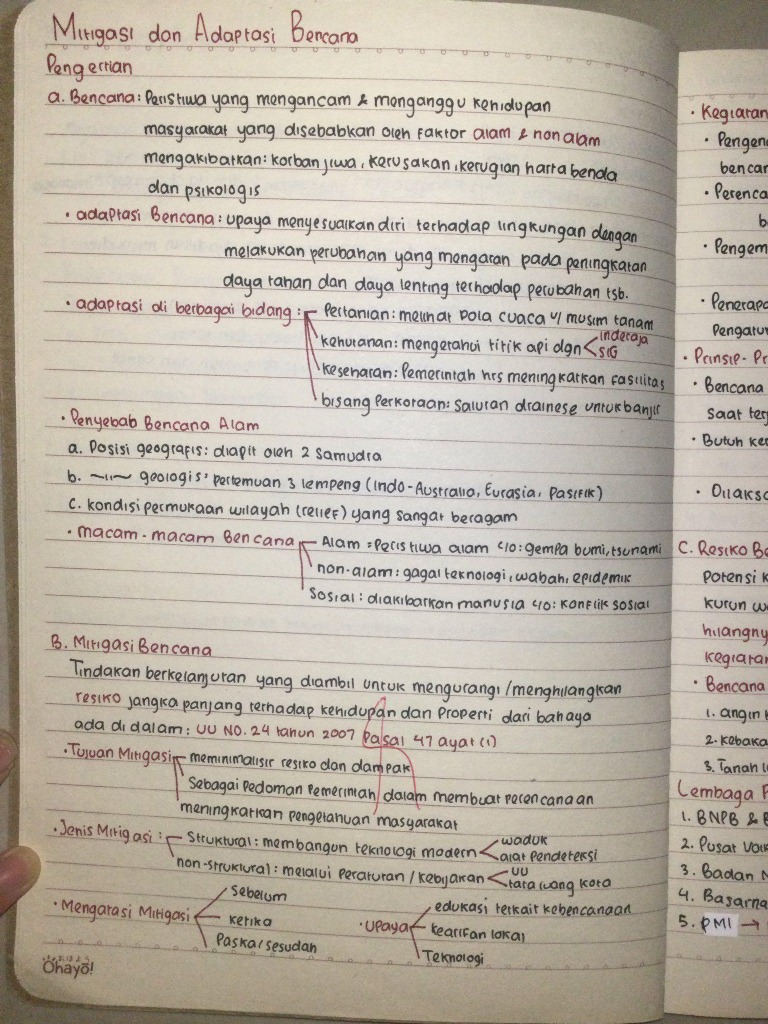 Mitigasi dan Adaptasi Bencana
Pengertian
a. Bencana: Peristiwa yang mengancam & menganggu kehidupan
masyarakat yang disebabkan oleh faktor alam & non alam
mengakibatkan: korban jiwa, kerusakan, kerugian harta benda
dan psikologis
• adaptasi Bencana: upaya menyesuaikan diri terhadap lingkungan dengan
melakukan perubahan yang mengarah pada peningkatan
daya tahan dan daya lenting terhadap perubahan tsb.
• adaptasi di berbagai bidang: Pertanian: melihat pola cuaca u/ musim tanam
kehutanan: mengetahui titik api dgn < inderaja
SIG
kesehatan: Pemerintah hrs meningkatkan fasilitas
bisang Perkotaan: saluran drainese untuk banjir
• Penyebab Bencana Alam
a. Posisi geografis: diapit oleh 2 Samudra
b. —"— geologis: pertemuan 3 lempeng (Indo-Australia, Eurasia, Pasifik)
c. kondisi permukaan wilayah (relief) yang sangat beragam
• macam-macam Bencana Alam = Peristiwa alam c/o: gempa bumi, tsunami
non-alam: gagal teknologi, wabah, epidemik
Sosial: diakibatkan manusia c/o: konflik sosial
B. Mitigasi Bencana
Tindakan berkelanjutan yang diambil untuk mengurangi/menghilangkan
resiko jangka panjang terhadap kehidupan dan properti dari bahaya
ada di dalam: UU NO. 24 tahun 2007 Pasal 47 ayat (1)
• Tujuan Mitigasi meminimalisir resiko dan dampak
Sebagai Pedoman Pemerintah dalam membuat perencanaan
meningkatkan pengetahuan masyarakat
• Jenis Mitigasi: Struktural: membangun teknologi modern < waduk
alat pendeteksi
non-struktural: melalui Peraturan/kebijakan < UU
tata ruang kota
• Mengatasi Mitigasi Sebelum
ketika
Paska/sesudah
• upaya edukasi terkait kebencanaan
kearifan lokal
Teknologi
Ohayō!
• Kegiatan
• Pengen
bencan
• Perenca
b
• Pengem
• Penerapa
Pengatur
• Prinsip-Pr
• Bencana
saat ter
• Butuh ker
• Dilaksa
C. Resiko Be
Potensi k
kurun w
hilangny
kegiatan
• Bencana
1. angin
2. kebaka
3. Tanah l
Lembaga P
1. BNPB & B
2. Pusat Vol
3. Badan
4. Basarna
5. PMI →